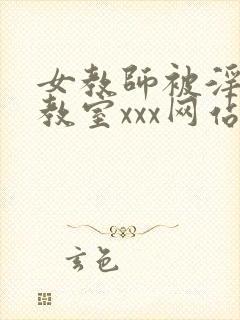 女教师被淫
教室xxx网站
玄色